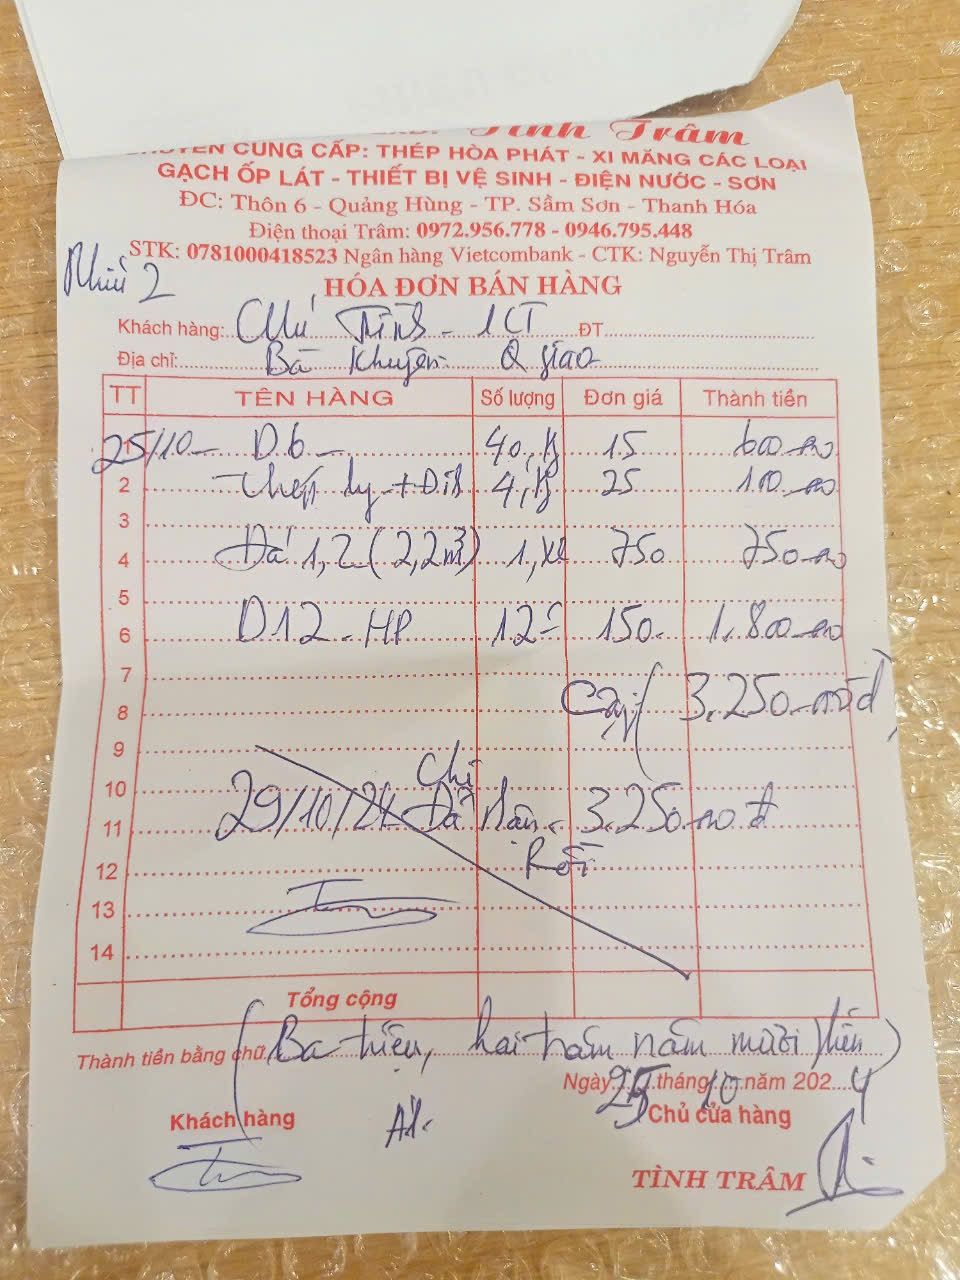 Tình Trâm
CHUYÊN CUNG CẤP: THÉP HÒA PHÁT - XI MĂNG CÁC LOẠI
GẠCH ỐP LÁT - THIẾT BỊ VỆ SINH - ĐIỆN NƯỚC - SƠN
ĐC: Thôn 6 - Quảng Hùng - TP. Sầm Sơn - Thanh Hóa
Điện thoại Trâm: 0972.956.778 - 0946.795.448
STK: 0781000418523 Ngân hàng Vietcombank - CTK: Nguyễn Thị Trâm
Phiếu 2
HÓA ĐƠN BÁN HÀNG
Khách hàng: Chú - 1CT ĐT
Địa chỉ: Bà Khuyên Q giao
TT TÊN HÀNG Số lượng Đơn giá Thành tiền
25/10 - D6 - 40, Kg 15 600
2 Thép ly + Đinh 4, Kg 25 100
3
4 Đá 1,2 (2,2m3) 1, xe 750 750
5
6 D12 - HP 12c 150 1.800
7
8 Cộng 3.250 đ
9
10 Chị
11 29/10/24 Đã nhận 3.250 đ
12 Rồi
13
14
Tổng cộng
Thành tiền bằng chữ: (Ba triệu, hai trăm năm mươi )
Ngày 25 tháng 10 năm 2024
Khách hàng Chủ cửa hàng
TÌNH TRÂM